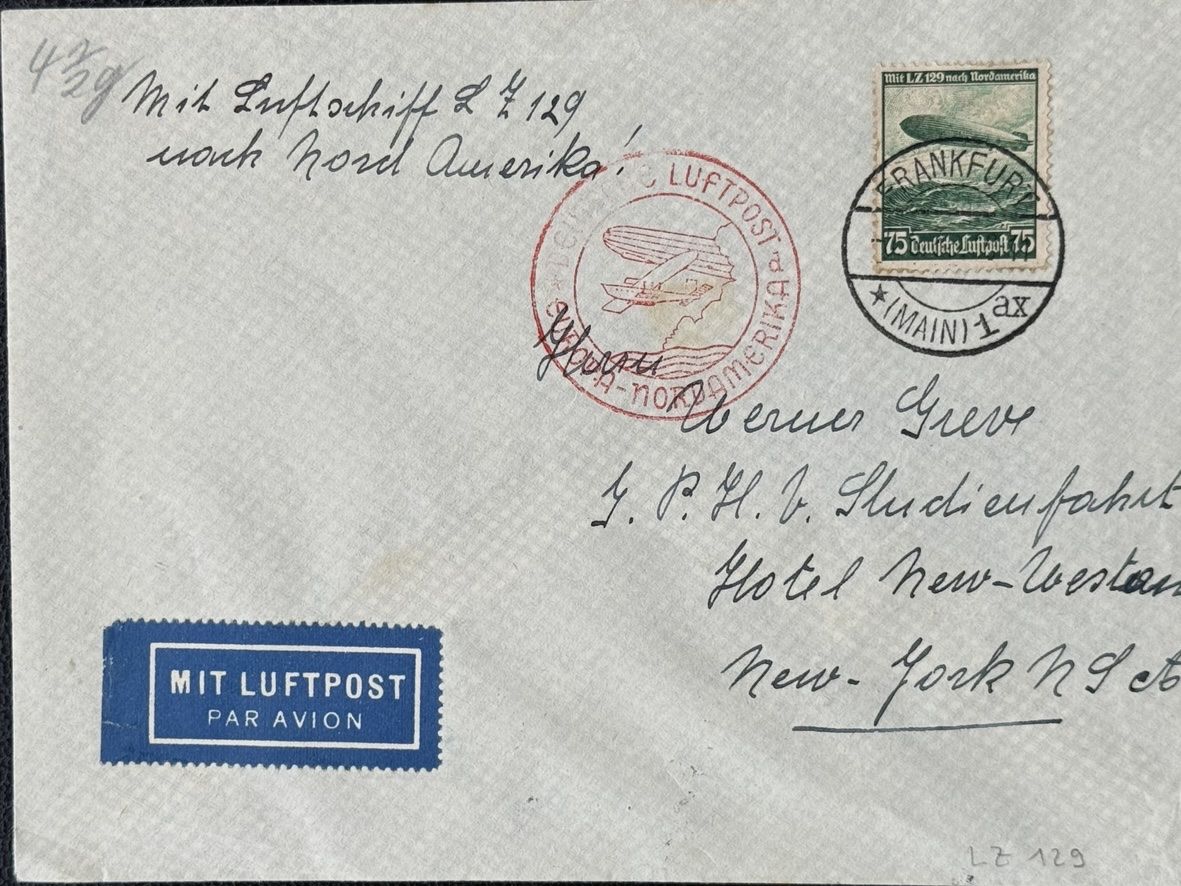 Mit Luftschiff L Z 129
nach Nord Amerika!
Mit LZ 129 nach Nordamerika
75 Deutsche Luftpost 75
FRANKFURT
★ (MAIN) 1 ax
DEUTSCHE LUFTPOST a
EUROPA-NORDAMERIKA
Herrn
Werner Greve
P. H. V. Studienfahrt
Hotel New-Weston
New-York USA
MIT LUFTPOST
PAR AVION
LZ 129